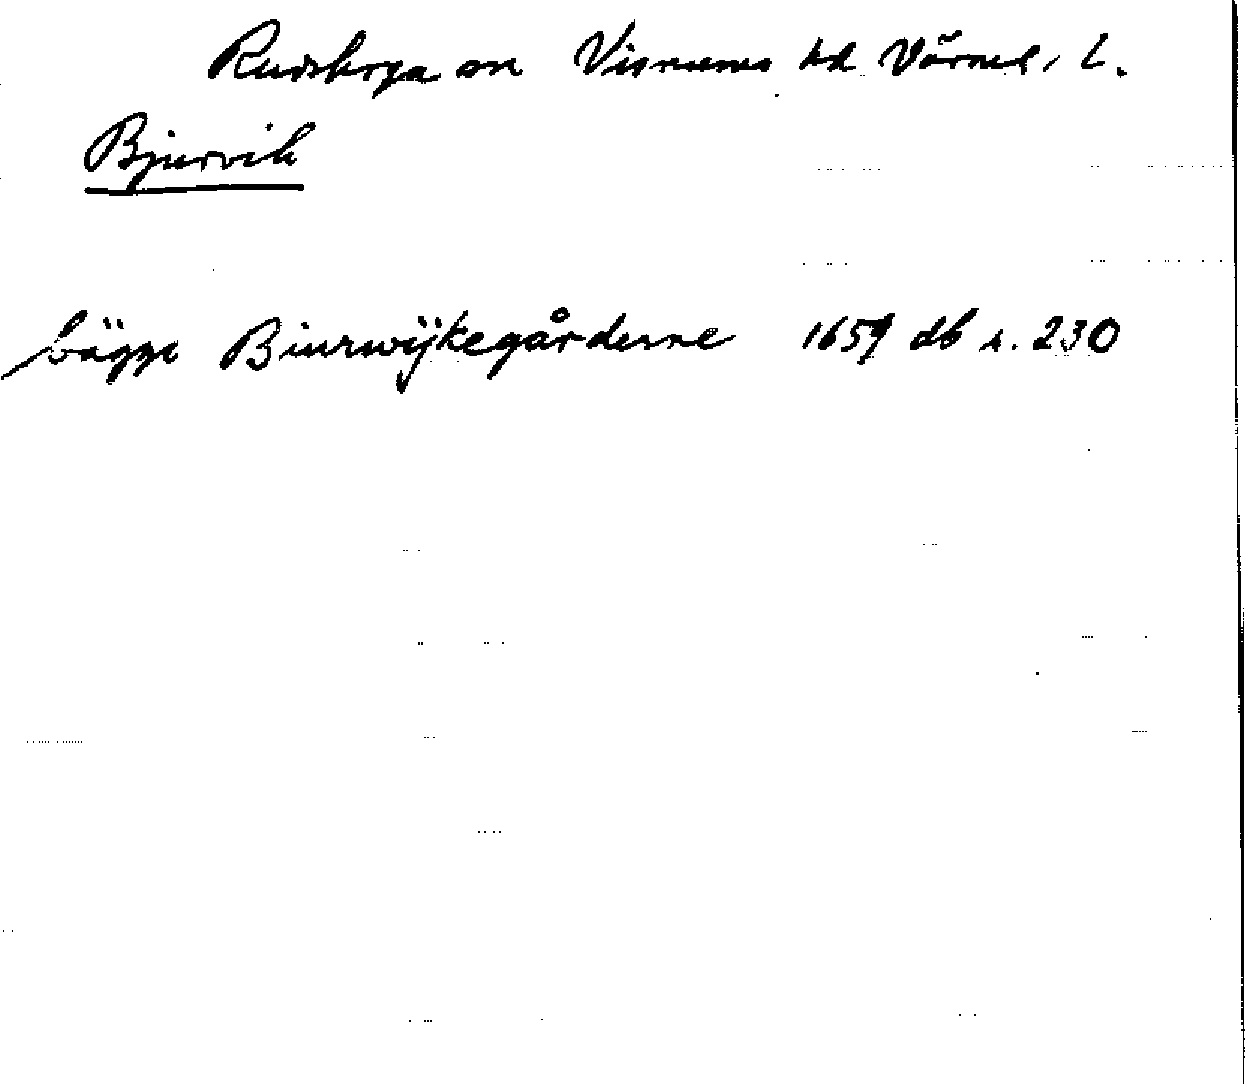 Rudskoga sn Visnums hd Värml. l.
Bjurvik
bägge Biurwijkegårderne 1659 db s. 230